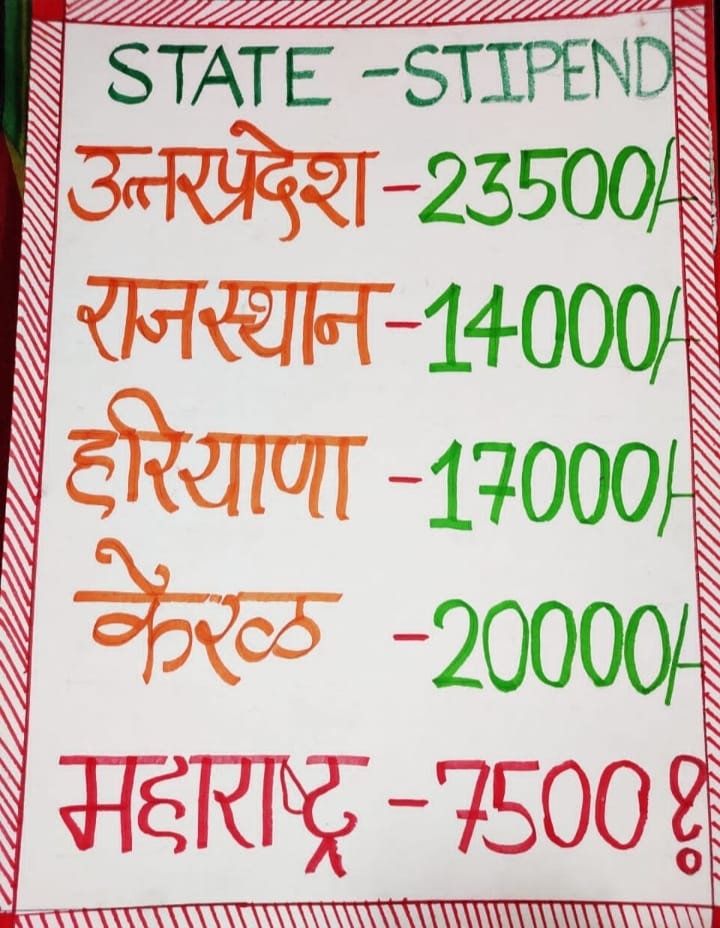 STATE - STIPEND
उत्तरप्रदेश - 23500/-
राजस्थान - 14000/-
हरियाणा - 17000/-
केरळ - 20000/-
महाराष्ट्र - 7500?